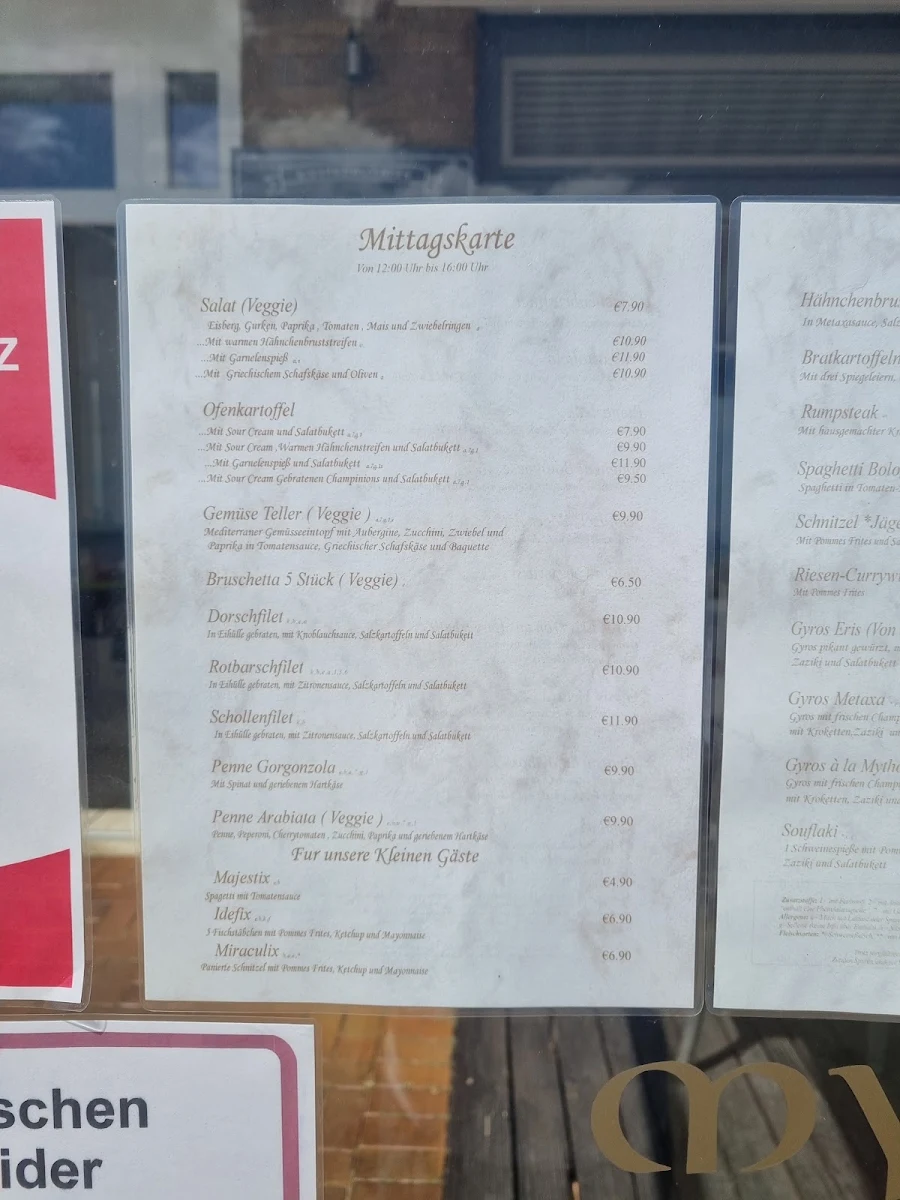 Mittagskarte
Von 12:00 Uhr bis 16:00 Uhr
Salat (Veggie) €7.90
Eisberg, Gurken, Paprika , Tomaten , Mais und Zwiebelringen
...Mit warmen Hähnchenbruststreifen €10.90
...Mit Garnelenspieß €11.90
...Mit Griechischem Schafskäse und Oliven €10.90
Ofenkartoffel
...Mit Sour Cream und Salatbukett €7.90
...Mit Sour Cream ,Warmen Hähnchenstreifen und Salatbukett €9.90
...Mit Garnelenspieß und Salatbukett €11.90
...Mit Sour Cream Gebratenen Champinions und Salatbukett €9.50
Gemüse Teller ( Veggie ) €9.90
Mediterraner Gemüsseeintopf mit Aubergine, Zucchini, Zwiebel und
Paprika in Tomatensauce, Griechischer Schafskäse und Baguette
Bruschetta 5 Stück ( Veggie) €6.50
Dorschfilet €10.90
In Eihülle gebraten, mit Knoblauchsauce, Salzkartoffeln und Salatbukett
Rotbarschfilet €10.90
In Eihülle gebraten, mit Zitronensauce, Salzkartoffeln und Salatbukett
Schollenfilet €11.90
In Eihülle gebraten, mit Zitronensauce, Salzkartoffeln und Salatbukett
Penne Gorgonzola €9.90
Mit Spinat und geriebenem Hartkäse
Penne Arabiata ( Veggie ) €9.90
Penne, Peperoni, Cherrytomaten , Zucchini, Paprika und geriebenem Hartkäse
Fur unsere Kleinen Gäste
Majestix €4.90
Spagetti mit Tomatensauce
Idefix €6.90
3 Fischstäbchen mit Pommes Frites, Ketchup und Mayonnaise
Miraculix €6.90
Panierte Schnitzel mit Pommes Frites, Ketchup und Mayonnaise
Hähnchenbrus
In Metaxasauce, Salz
Bratkartoffeln
Mit drei Spiegeleiern,
Rumpsteak
Mit hausgemachter Kr
Spaghetti Bolo
Spaghetti in Tomaten-
Schnitzel *Jäge
Mit Pommes Frites und Sa
Riesen-Currywu
Mit Pommes Frites
Gyros Eris (Von
Gyros pikant gewürzt,
Zaziki und Salatbukett
Gyros Metaxa
Gyros mit frischen Champ
mit Kroketten,Zaziki
Gyros à la Mytho
Gyros mit frischen Champ
mit Kroketten, Zaziki un
Souflaki
1 Schweinespieße mit Pom
Zaziki und Salatbukett
z
schen
ider
my